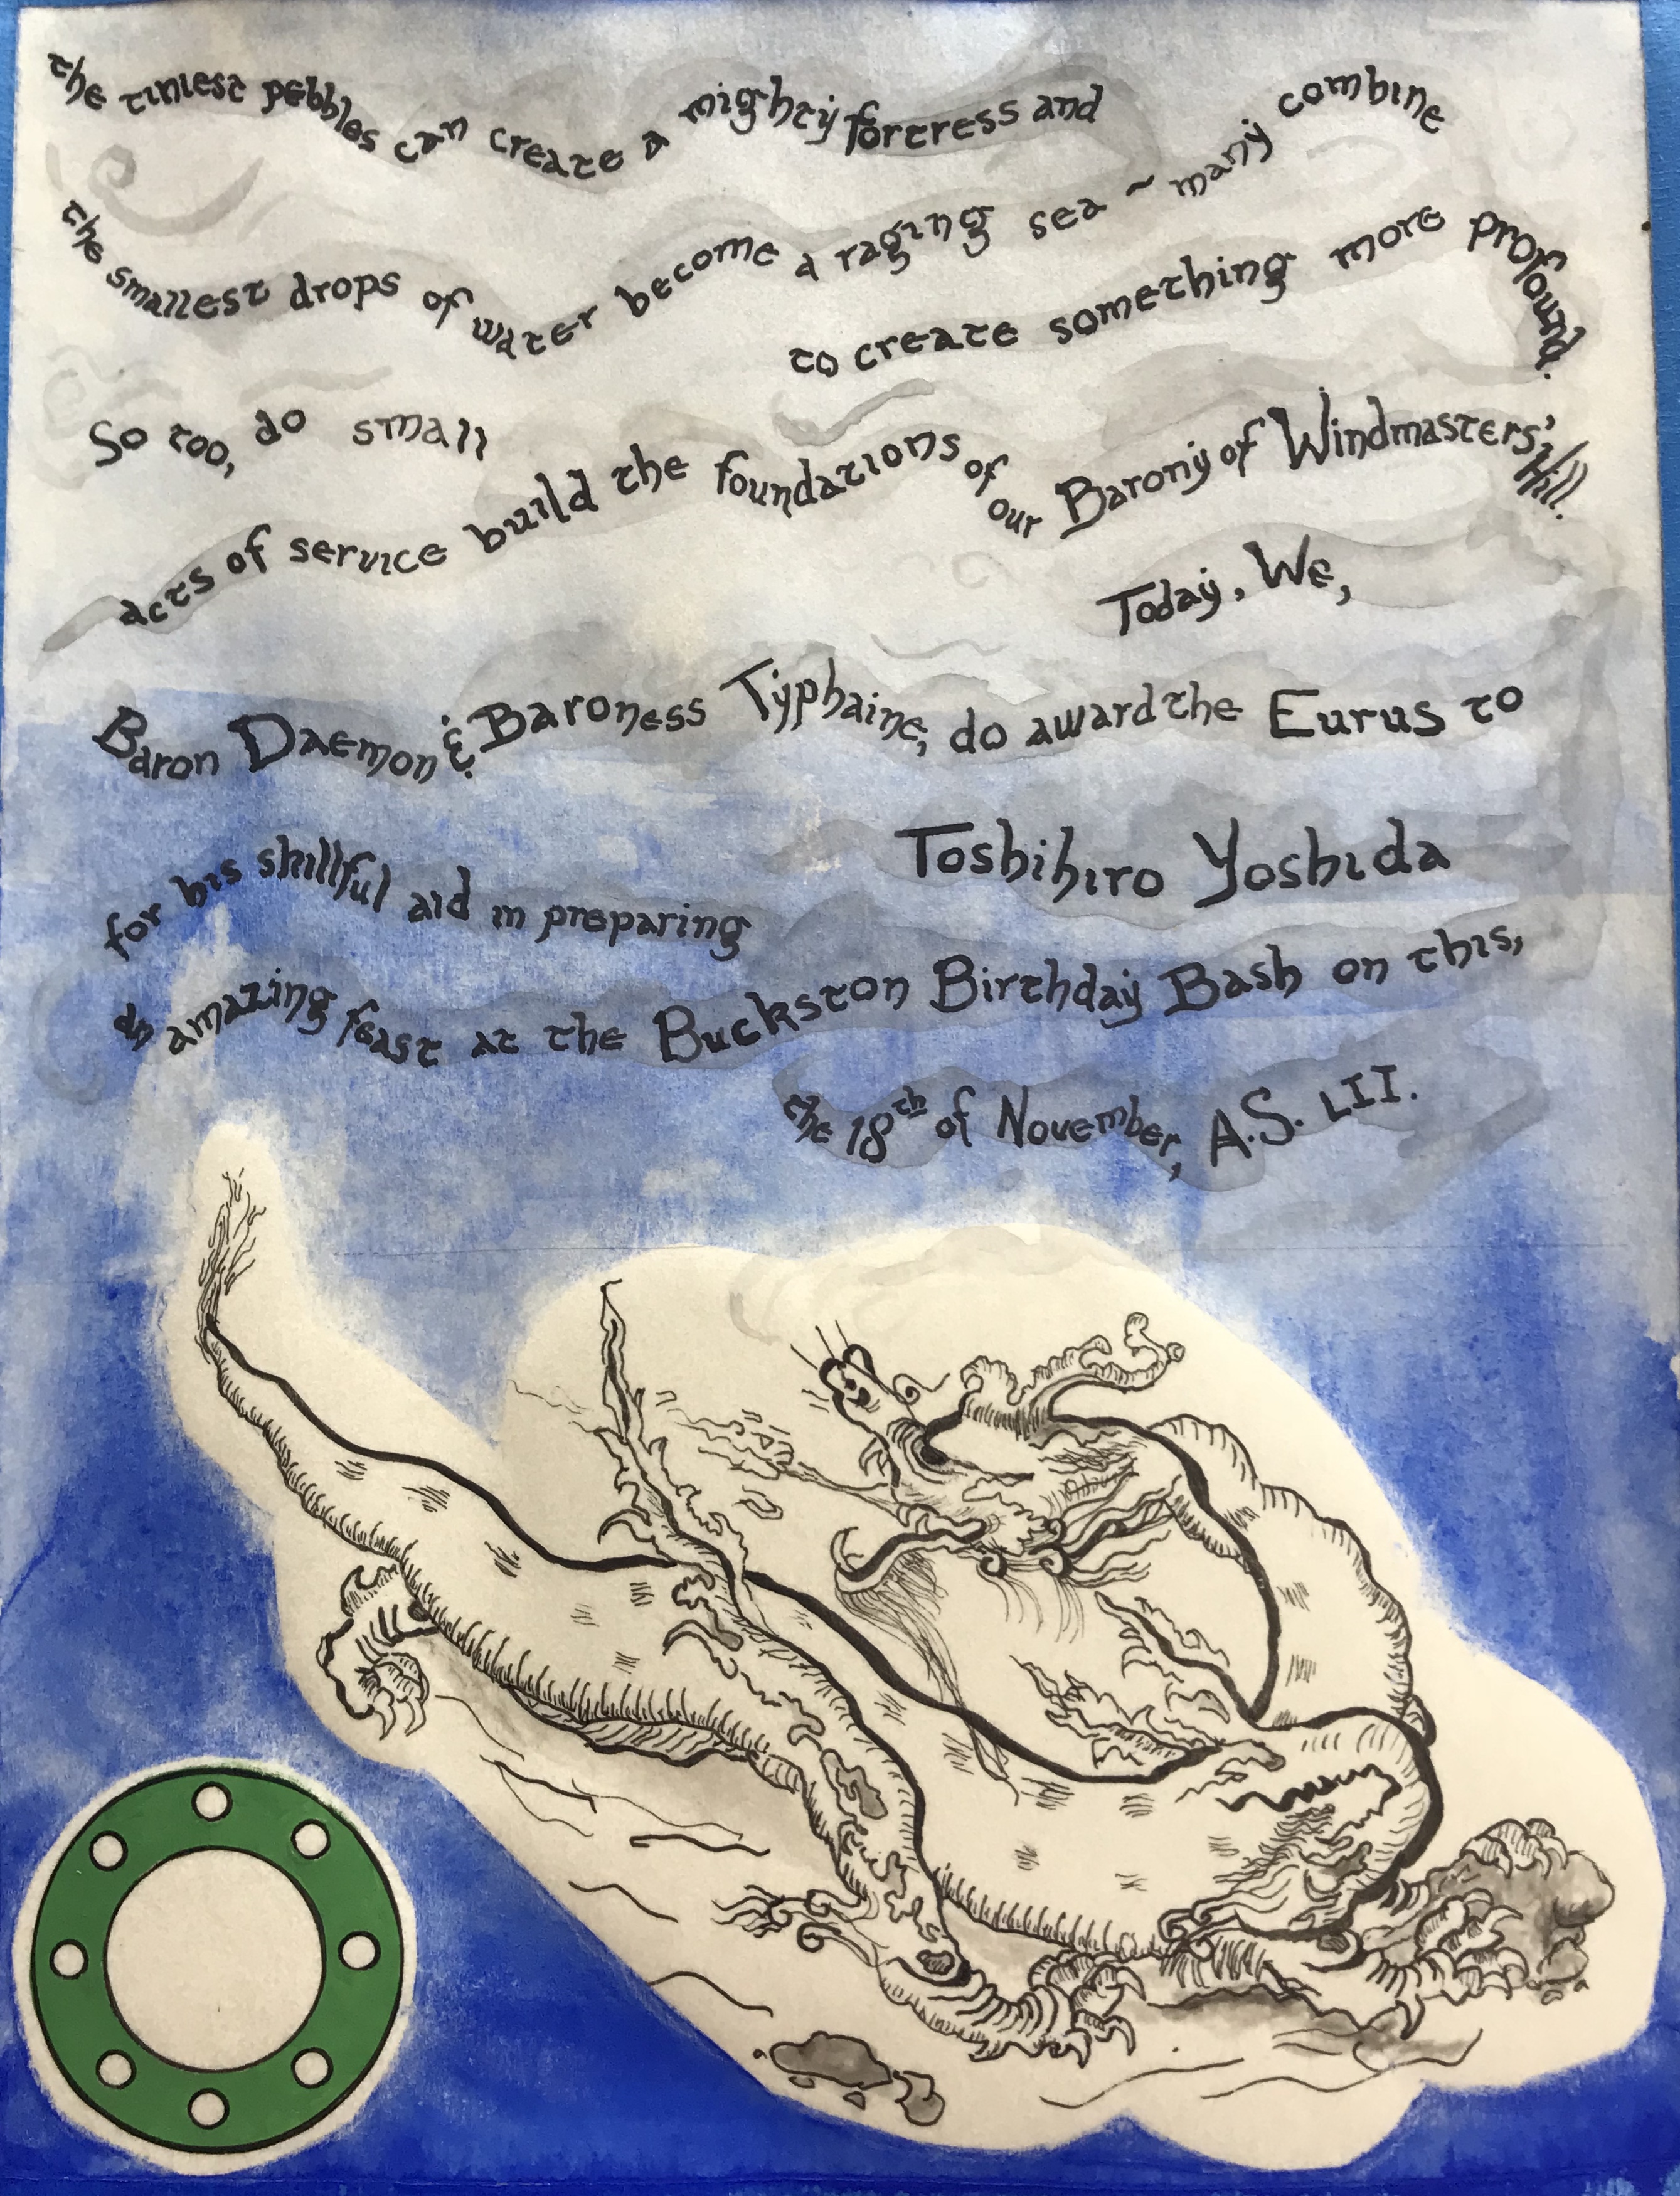 the tiniest pebbles can create a mighty fortress and
the smallest drops of water become a raging sea ~ many combine
to create something more profound.
So too, do small
acts of service build the foundations of our Barony of Windmasters' Hill.
Today, We,
Baron Daemon & Baroness Typhaine, do award the Eurus to
Toshihiro Yoshida
for his skillful aid in preparing
an amazing feast at the Buckston Birthday Bash on this,
the 18th of November, A.S. LII.